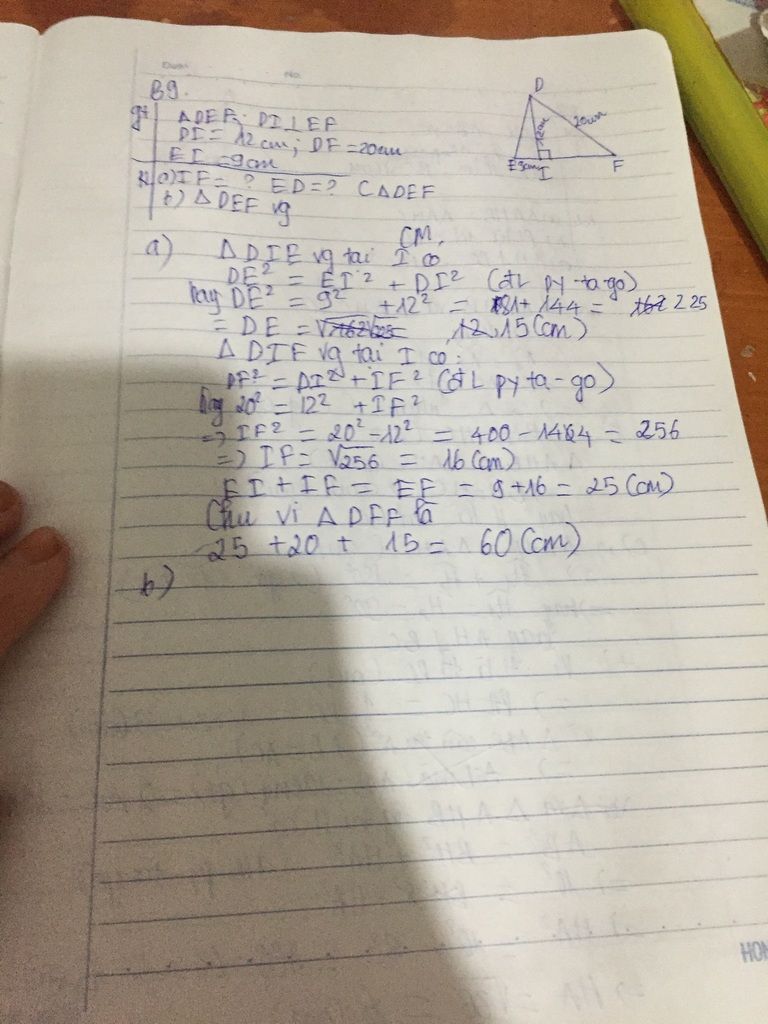 No.
B9.
D
gt
ΔDEF; DI⊥EF
DI = 12cm; DF = 20cm
EI = 9cm
12cm
20cm
E 9cm I F
KL a) IF = ? ED = ? CΔDEF
b) ΔDEF vg
CM.
a) ΔDIE vg tại I có
DE² = EI² + DI² (đL py-ta-go)
hay DE² = 9² + 12² = 81 + 144 = 225
= DE = √225 15(cm)
ΔDIF vg tại I có:
DF² = DI² + IF² (đL py ta-go)
hay 20² = 12² + IF²
=> IF² = 20² - 12² = 400 - 144 = 256
=> IF = √256 = 16(cm)
EI + IF = EF = 9 + 16 = 25(cm)
Chu vi ΔDEF là
25 + 20 + 15 = 60(cm)
b)
HON